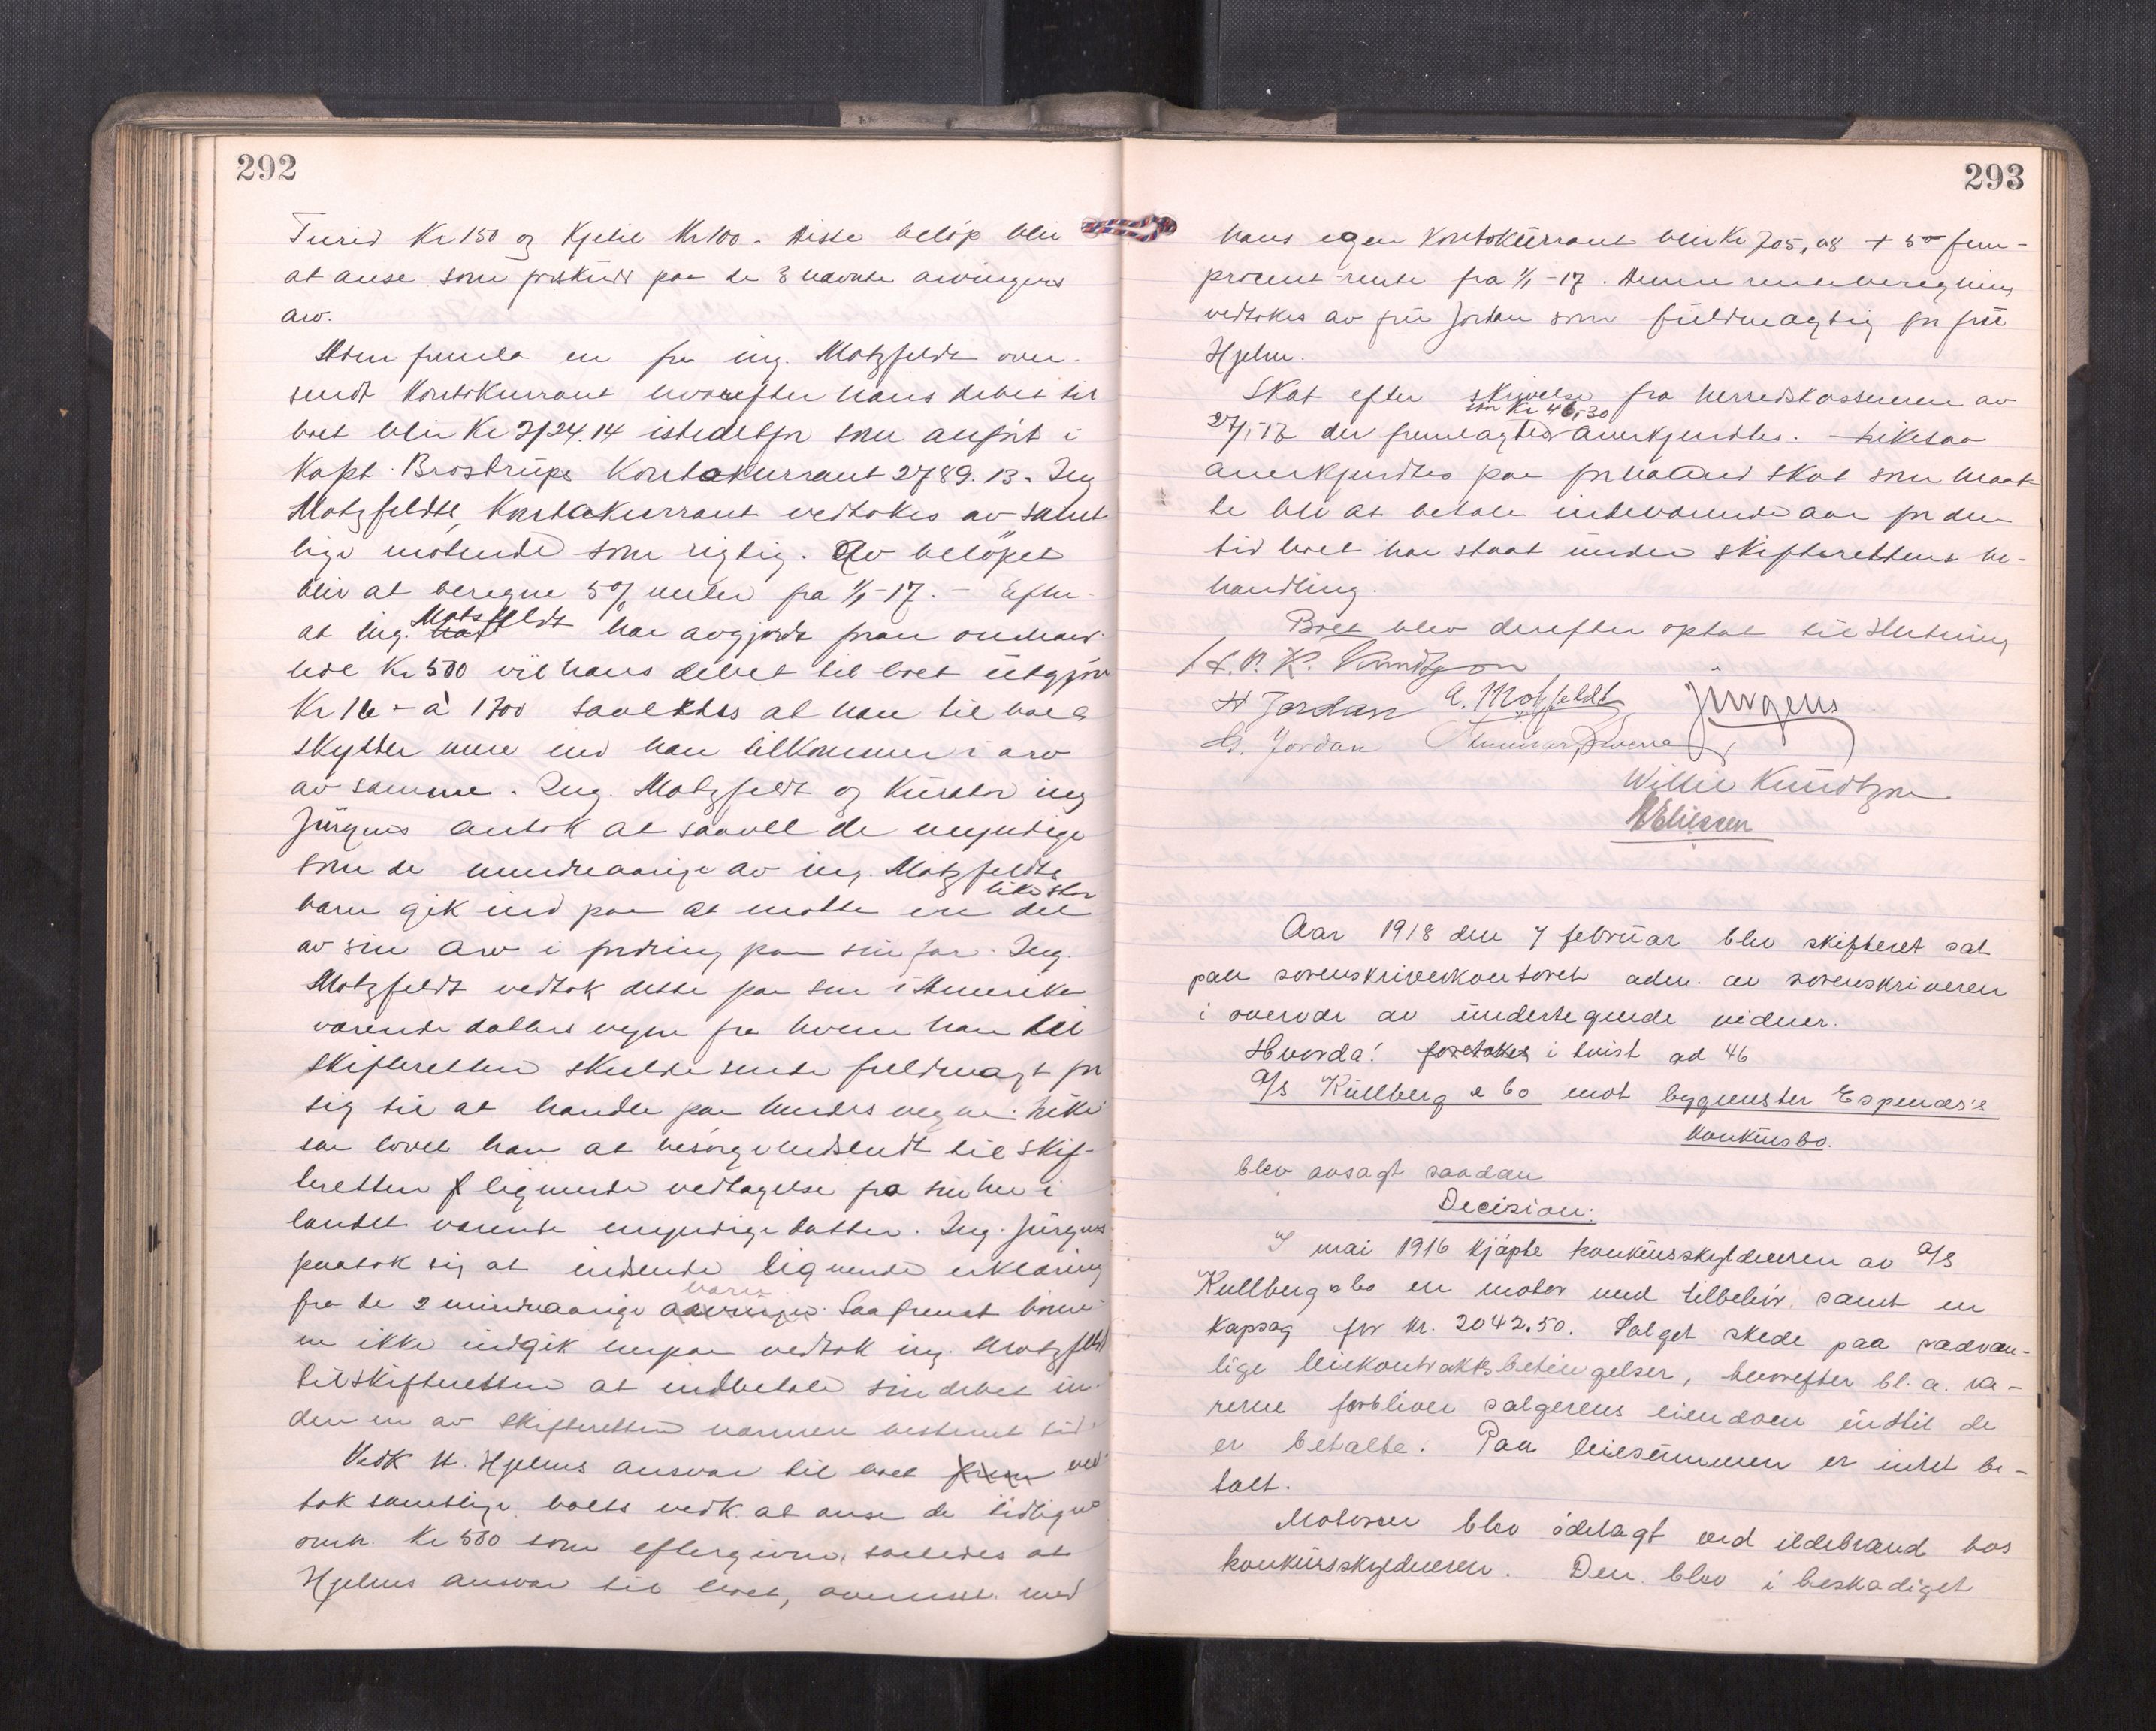 292
Turid Kr 150 og Kjetil Kr 100. Disse beløp blir
at anse som forskudd paa de 3 nævnte arvingers
arv.
Der fremla en fra ing. Motzfeldt over-
sendt Kontokurrant hvorefter hans debet til
boet blir Kr 2724.14 istedetfor som anført i
Kapt. Brostrups Kontokurrant 2789.13. Ing
Motzfeldts Kontokurrant vedtokes av samt
lige møtende som rigtig. Av beløpet
blir at beregne 5% renter fra 1/1-17. - Efter
at ing. Motzfeldt har avgjordt foran omhand-
lede Kr 500 vil hans debet til boet utgjøre
Kr 16 - à 1700 saaledes at han til boet
skylder mere end han tilkommer i arv
av samme. Ing. Motzfeldt og Kurator ing
Jürgens antok at saavel de myndige
som de mindreaarige av ing. Motzfeldts
barn gik ind paa at motta en like stor del
av sin arv i fordring paa sin far. Ing.
Motzfeldt vedtok dette paa sin i Amerika
værende datters vegne fra hvem han til
skifteretten skulde sende fuldmagt for
sig til at handle paa hendes vegne. Like
saa lovet han at besørge indsendt til skif-
teretten lignende vedtagelse fra sin her i
landet værende myndige datter. Ing. Jürgens
paatok sig at indsende lignende erklæring
fra de 2 mindreaarige barn. Saafremt børne-
ne ikke indgik herpaa vedtok ing. Motzfeldt
til skifteretten at indbetale sin debet in-
den en av skifteretten nærmere bestemt tid.
Vedk H. Hjelms ansvar til boet ved-
tok samtlige boets vedk. at anse de tidligere
omh. Kr 500 som eftergivne, saaledes at
Hjelms ansvar til boet, overensst. med
293
hans egen Kontokurrant blir Kr 705,08 + 5% fem-
procent rente fra 1/1-17. Denne renteberegning
vedtokes av fru Jordan som fuldmægtig for fru
Hjelm.
Skat efter skrivelse fra herredskassereren av
27/1-17 stor Kr 46,30 der fremlagdes anerkjendtes. Likesaa
anerkjendtes paa forhaand skat som maat
te bli at betale indeværende aar for den
tid boet har staat under skifterettens be-
handling.
Boet blev derefter optat til slutning
H. Jordan A. Motzfeldt Jürgens
G. Jordan
Willie Knudtzon
Aar 1918 den 7 februar blev skifteret sat
paa sorenskriverkontoret adm. av sorenskriveren
i overvær av undertegnede vidner.
Hvorda: foretokes i tvist ad 46
A/S Kullberg & Co mot bygmester Espenæs's
konkursbo.
blev avsagt saadan
Decision:
I mai 1916 kjøpte konkursskyldneren av A/S
Kullberg & Co en motor med tilbehør samt en
kapsag for kr. 2042.50. Salget skede paa sædvan-
lige leiekontraktsbetingelser, hvorefter bl. a. va-
rerne forbliver sælgerens eiendom indtil de
er betalte. Paa leiesummen er intet be-
talt.
Motoren blev ødelagt ved ildebrand hos
konkursskyldneren. Den blev i beskadiget